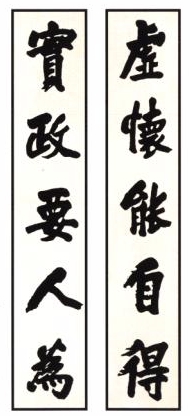 虛懷能自得
實政要人為